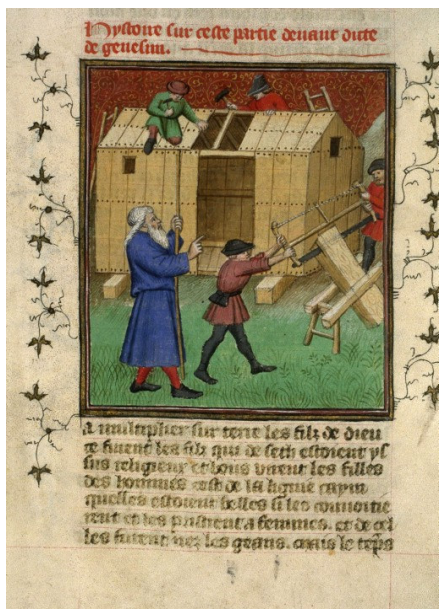 Hystoire sur ceste partie devant dicte
de genesim.
a multiplier sur terre les filz de dieu
ce furent les filz qui de seth estoient ys
sus religieux et bons virent les filles
des hommes cest de la lignie caym
quelles estoient belles si les couvoitie
rent et les pristrent a femmes. et de cel
les furent nez les geans. mais le temps